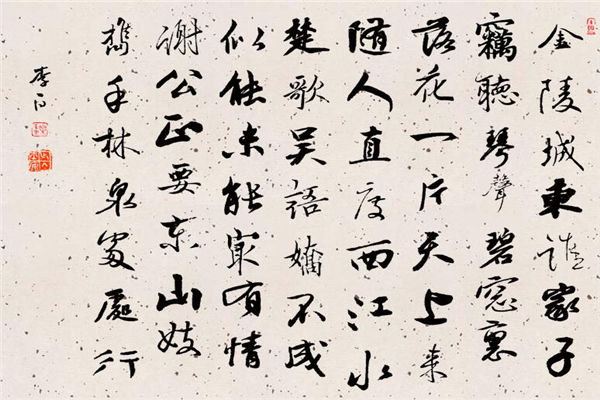 金陵城東誰家子
竊聽琴聲碧窓裏
落花一片天上来
随人直度西江水
楚歌吴語嬌不成
似能未能㝡有情
謝公正要东山妓
攜手林泉处處行
李白